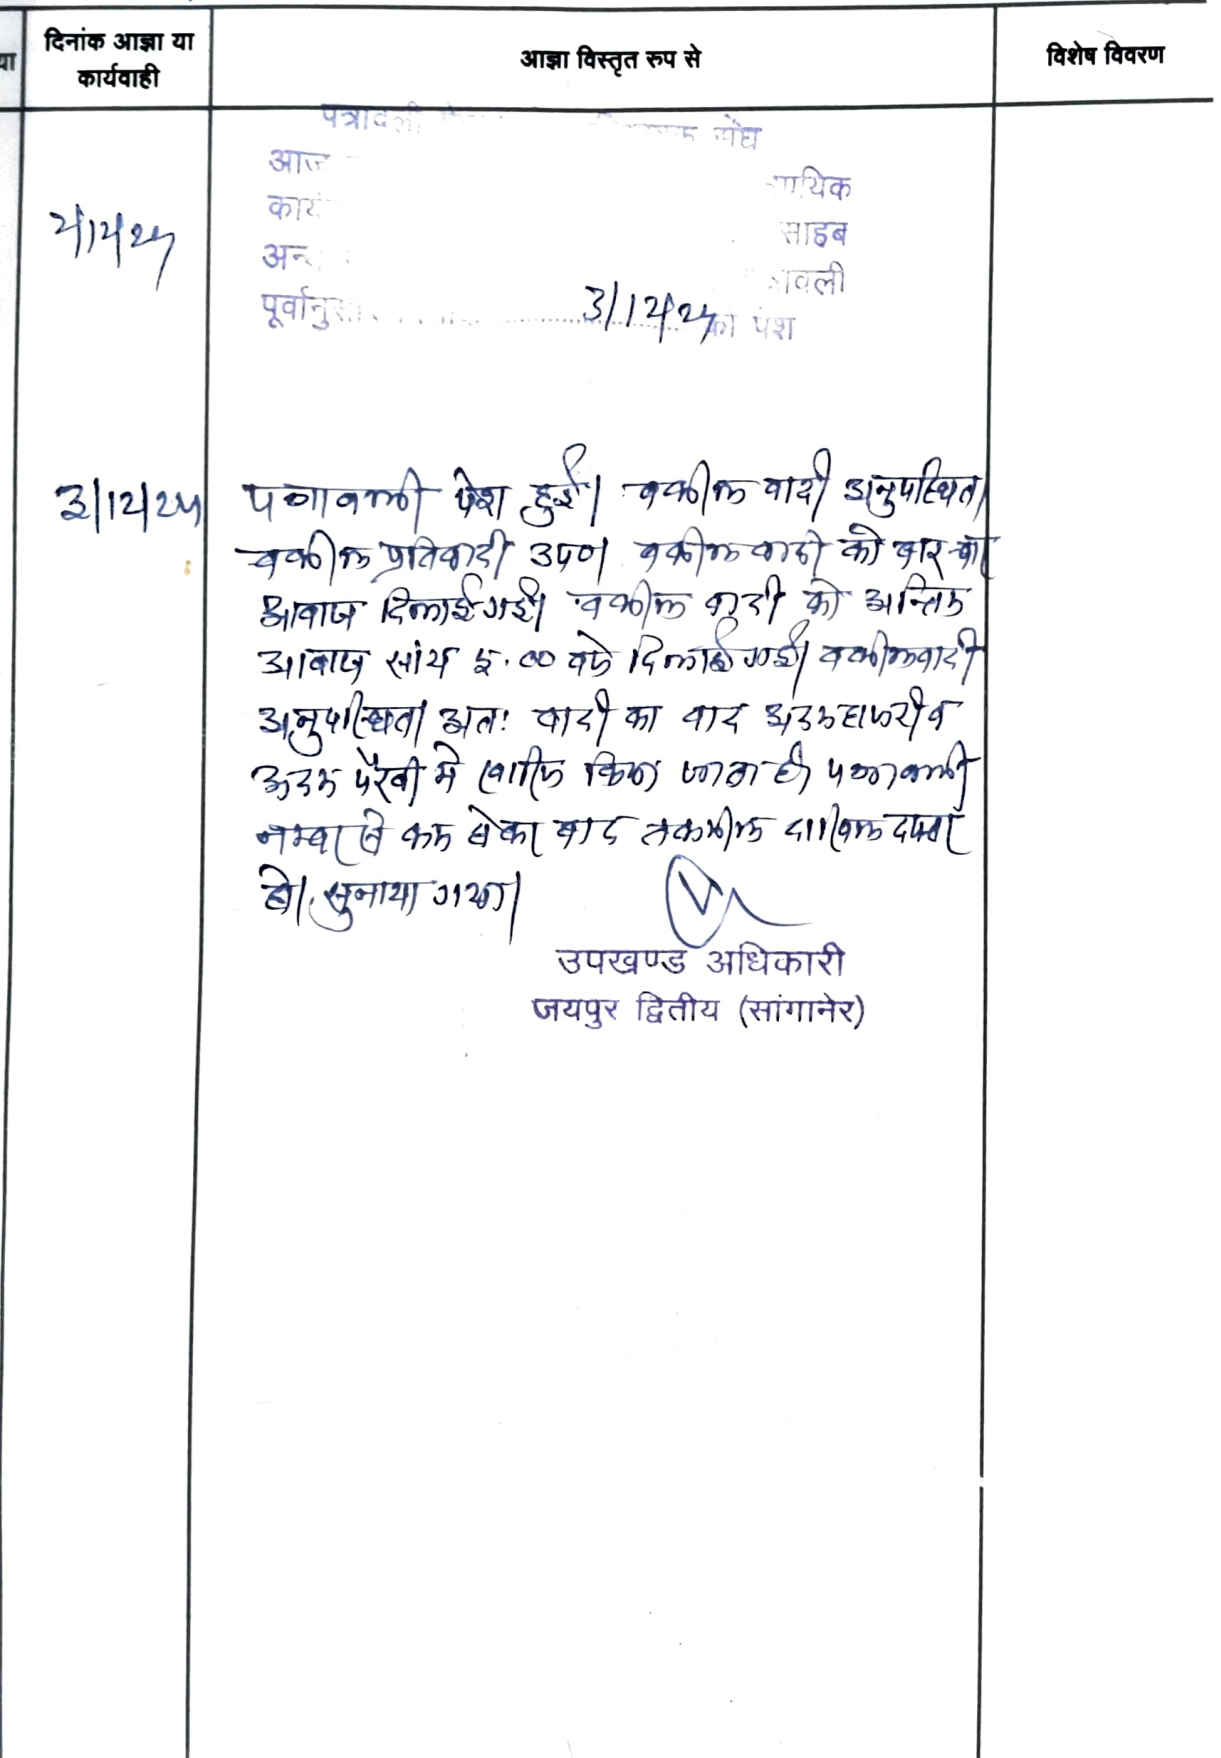 या
दिनांक आज्ञा या
कार्यवाही
आज्ञा विस्तृत रुप से
विशेष विवरण
पत्रावली संघ
आज
साइब
पूर्वानुसार 3/12/25 का पेश
2/12/25
3/12/25
पत्रावली पेश हुई। वकील वादी अनुपस्थित।
वकील प्रतिवादी उप०। वकील वादी को बार-बार
आवाज दिलाई गई। वकील वादी को अन्तिम
आवाज सांय 5.00 बजे दिलाई गई। वकील वादी
अनुपस्थित। अतः वादी का वाद अदम हाजरी व
अदम पैरवी मे खारिज किया जाता है। पत्रावली
नम्बर से कम होकर बाद तकमील दाखिल दफ्तर
हो। सुनाया गया।
उपखण्ड अधिकारी
जयपुर द्वितीय (सांगानेर)